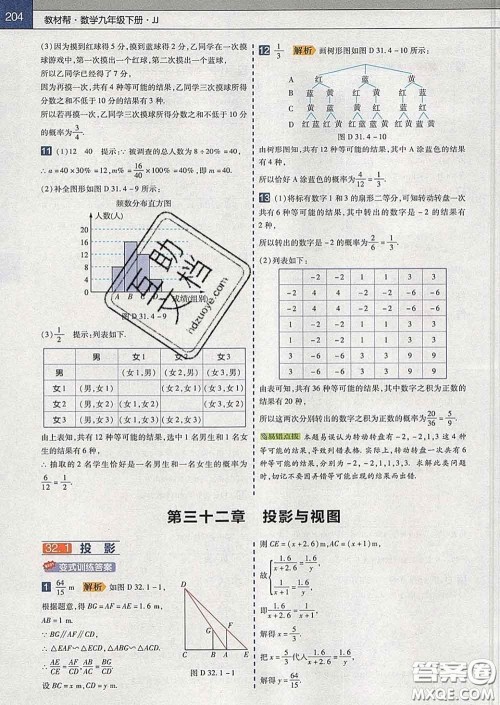 204
教材帮·数学九年级下册·JJ
(3)因为摸到红球得5分,摸到蓝球得2分,乙同学在一次摸
球游戏中,第一次摸出一个红球,第二次又摸出一个蓝
球,
因为再摸一次,共有4种等可能的结果,乙同学三次摸球所得
分数之和不低于10分的结果有3种,
所以若再摸一次,乙同学三次摸球所得分数之和不低于10分
的概率为3/4.
11 (1)12 40 提示:∵被调查的总人数为8÷20%=40,
∴a=40×30%=12,b%=16/40×100%=40%,即m=40.
(2)补全图形如图D 31.4-9所示.
频数分布直方图
人数(人)
20
16
12
8
4
0
A B C D 成绩(组别)
图D 31.4-9
(3)1/2 提示:列表如下:
男 女1 女2 女3
男 (女1,男) (女2,男) (女3,男)
女1 (男,女1) (女2,女1) (女3,女1)
女2 (男,女2) (女1,女2) (女3,女2)
女3 (男,女3) (女1,女3) (女2,女3)
由上表知,共有12种等可能的结果,选中1名男生和1名女生
的结果有6种,
∴抽取的2名学生恰好是一名男生和一名女生的概率为
6/12=1/2.
12 1/3 解析 画树形图如图D 31.4-10所示:
A 红 蓝 黄
B 蓝 黄 红 黄 红 蓝
C
D
图D 31.4-10
由树形图知,共有12种等可能的结果,其中A涂蓝色的结果
有4种,
所以恰好A涂蓝色的概率为4/12=1/3.
13 (1)将标有数字1和3的扇形二等分,可知转动转盘一次
共有6种等可能的结果,其中转出的数字是-2的结果有
2种,
所以转出的数字是-2的概率为2/6=1/3.
(2)列表如下:
-2 -2 1 1 3 3
-2 4 4 -2 -2 -6 -6
-2 4 4 -2 -2 -6 -6
1 -2 -2 1 1 3 3
1 -2 -2 1 1 3 3
3 -6 -6 3 3 9 9
3 -6 -6 3 3 9 9
由表可知,共有36种等可能的结果,其中数字之积为正数的
结果有20种,
所以这两次分别转出的数字之积为正数的概率为20/36=5/9.
易错点拨 本题易误认为转动转盘有-2,-2,1,3这4种
等可能结果,导致列错表格.实际上,转动转盘一次共有
-2,-2,1,1,3,3这6种等可能结果,求概率时,必须以此
为切入口.
第三十二章 投影与视图
32.1 投影
变式训练答案
1 64/15 m 解析 如图D 32.1-1,
根据题意,得BG=AF=AE=1.6 m,
AB=1 m.
∵BG∥AF∥CD,
∴△EAF∽△ECD,△ABG∽△ACD,
∴AE/EC=AF/CD,AB/AC=BG/CD.
设BC=x m,CD=y m,
D
G F
C B A E
图D 32.1-1
则CE=(x+2.6)m,AC=(x+1)m,
故{1.6/(x+2.6)=1.6/y,
1/(x+1)=1.6/y,
解得x=5/3.
把x=5/3代入1.6/(x+2.6)=1.6/y,
解得y=64/15.
互助文档
hdzuoye.com
答案圈
MXQE.COM